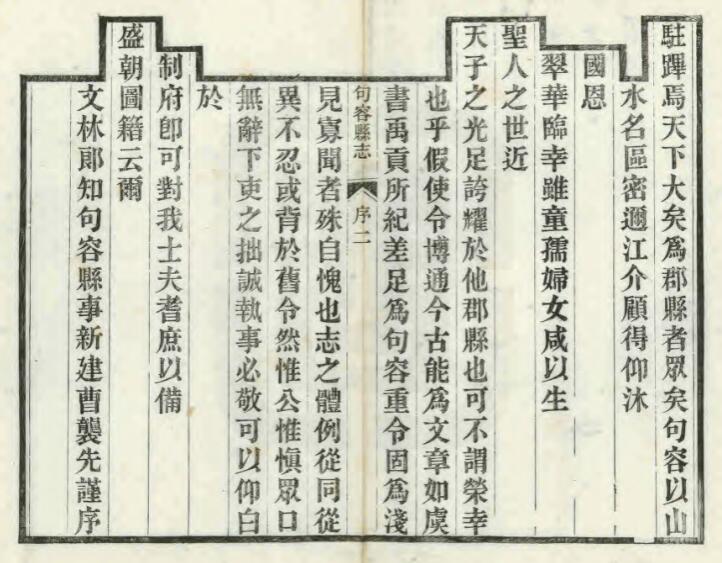 駐蹕焉天下大矣為郡縣者眾矣句容以山
水名區密邇江介顧得仰沐
國恩
翠華臨幸雖童孺婦女咸以生
聖人之世近
天子之光足誇耀於他郡縣也可不謂榮幸
也乎假使令博通今古能為文章如虞
書禹貢所紀差足為句容重令固為淺
句容縣志 序二
見寡聞者殊自愧也志之體例從同從
異不忍或背於舊令然惟公惟慎眾口
無辭下吏之拙誠執事必敬可以仰白
於
制府卽可對我士夫耆庶以備
盛朝圖籍云爾
文林郞知句容縣事新建曹襲先謹序